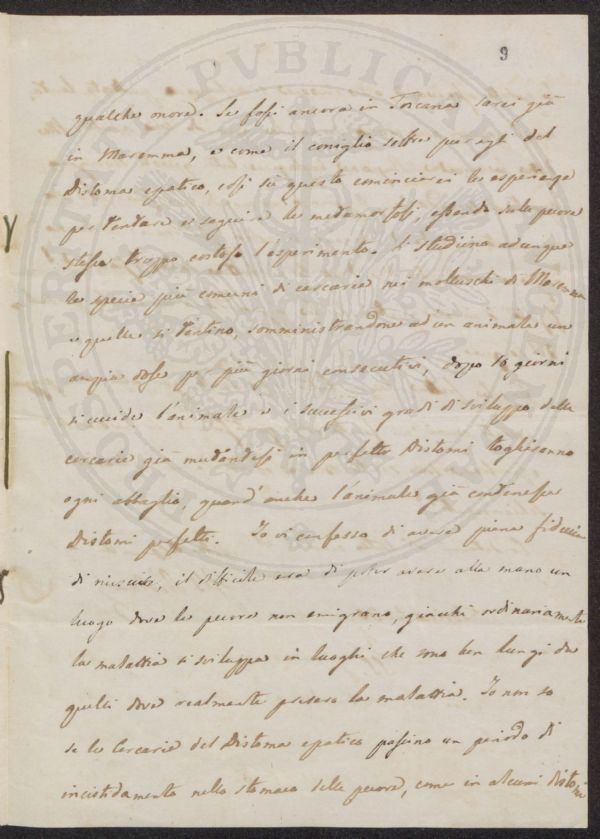 9
qualche onore. Se fossi ancora in Toscana sarei già
in Maremma, e come il coniglio soffre pur egli del
Distoma epatico, così su questo comincierei le esperienze
per tentare e seguire le metamorfosi, essendo sulle pecore
stesse troppo costoso l'esperimento. Si studiino adunque
le specie più comuni di cercarie nei molluschi di Maremma
e quelle si tentino, somministrandone ad un animale un
ampia dose per più giorni consecutivi, dopo 10 giorni
si uccide l'animale e i successivi gradi di sviluppo delle
cercarie già mutandosi in perfetti Distomi toglieranno
ogni abbaglio, quand'anche l'animale già contenesse
Distomi perfetti. Io vi confesso di avere piena fiducia
di riuscita, il difficile era di poter avere alla mano un
luogo dove le pecore non emigrano, giacchè ordinariamente
la malattia si sviluppa in luoghi che sono ben lungi da
quelli dove realmente presero la malattia. Io non so
se le Cercarie del Distoma epatico passino un periodo di
incistidamento nello stomaco delle pecore, come in alcuni Distomi